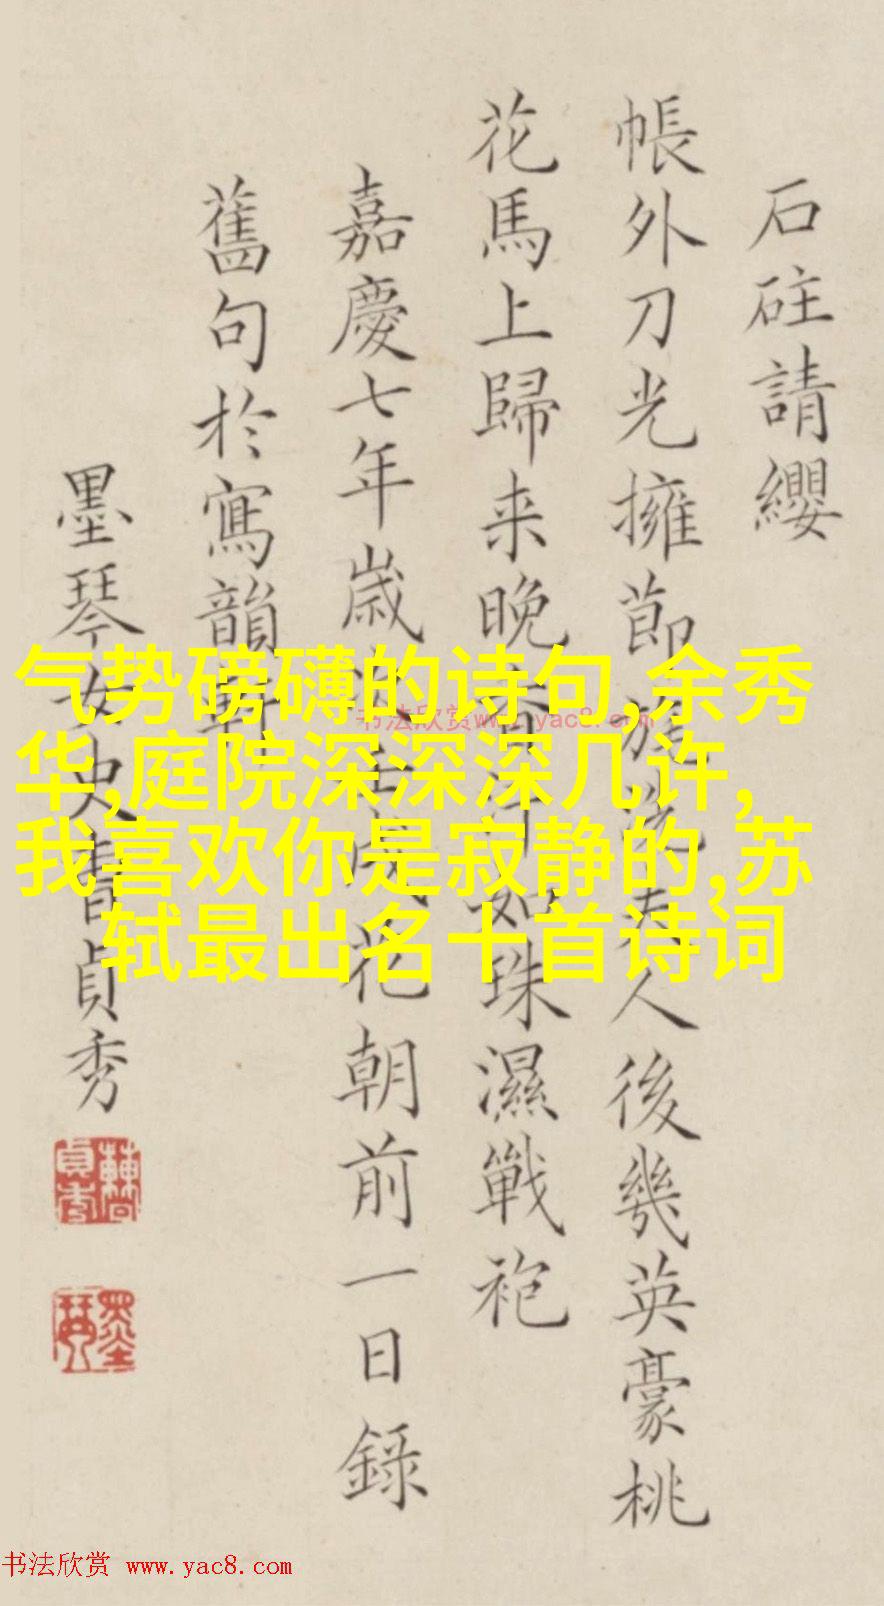 石砫請纓
帳外刀光擁節旄洗夫人後幾英豪桃
花馬上歸来晚香汗如珠濕戰袍
嘉慶七年歲次壬戌花朝前一日錄
舊句於寫韻軒
墨琴女史曹貞秀
气势磅礴的诗句,余秀
华,庭院深深深几许,
我喜欢你是寂静的,苏
轼最出名十首诗词
书法欣赏www.yac8.com
书法欣赏 www.yac8.com